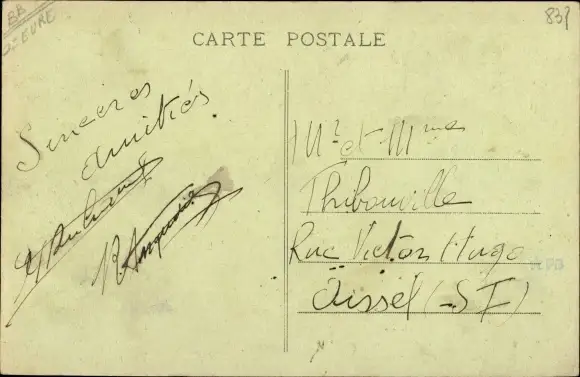 BB
2=EURE
837
CARTE POSTALE
Sincères
amitiés.
Mr et Mme
Thibouville
Rue Victor Hugo
(S I)